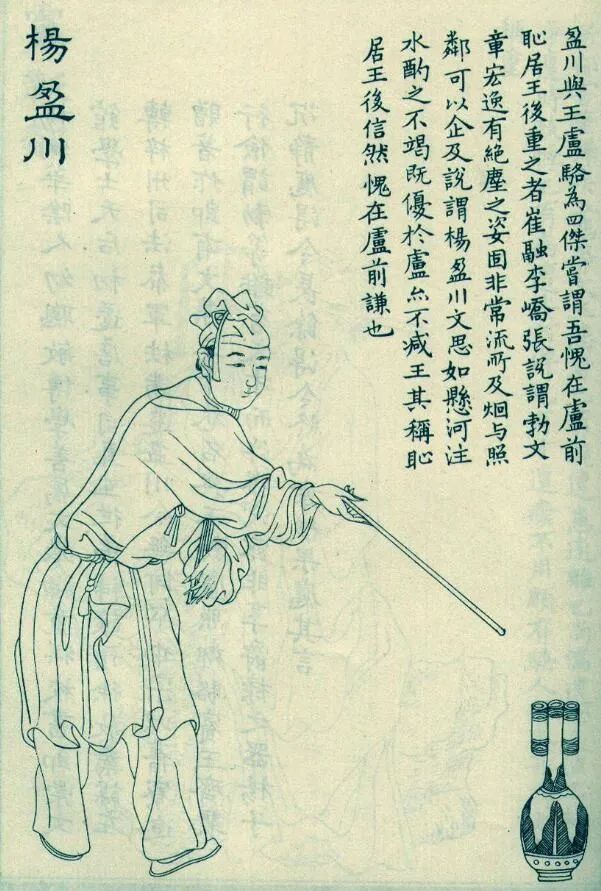 盈川與王盧駱為四傑嘗謂吾愧在盧前
恥居王後重之者崔融李嶠張說謂勃文
章宏逸有絕塵之姿固非常流所及烱与照
鄰可以企及說謂楊盈川文思如懸河注
水酌之不竭既優於盧亦不减王其稱恥
居王後信然愧在盧前謙也
楊盈川